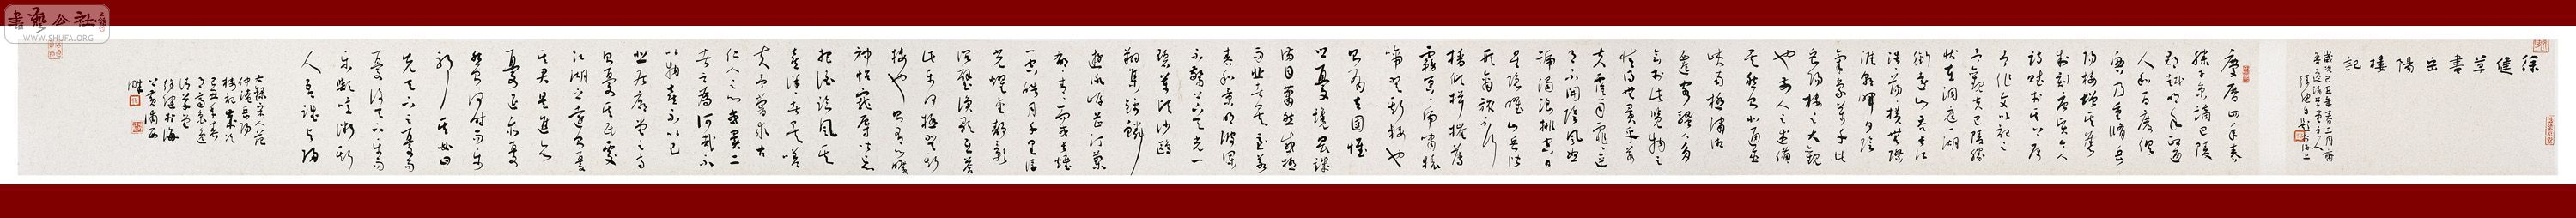 徐健草書岳陽樓記
慶曆四年春
滕子京謫巴陵
郡越明年政通
人和百廢俱
興乃重修岳
陽樓增其舊
制刻唐賢今人
詩賦於其上屬
予作文以記之
予觀夫巴陵勝
狀在洞庭一湖
銜遠山吞長江
浩浩蕩蕩橫無際
涯朝暉夕陰
氣象萬千此
則岳陽樓之大觀
也前人之述備
矣然則北通巫
峽南極瀟湘
遷客騷人多
會於此覽物之
情得無異乎若
夫霪雨霏霏連
月不開陰風怒
號濁浪排空日
星隱曜山岳潛
形商旅不行
檣傾楫摧薄
暮冥冥虎嘯猿
啼登斯樓也
則有去國懷
鄉憂讒畏譏
滿目蕭然感極
而悲者矣至若
春和景明波瀾
不驚上下天光一
碧萬頃沙鷗
翔集錦鱗
遊泳岸芷汀蘭
郁郁青青而或長煙
一空皓月千里浮
光耀金靜影
沉璧漁歌互答
此樂何極登斯
樓也則有心曠
神怡寵辱偕忘
把酒臨風其
喜洋洋者矣嗟
夫予嘗求古
仁人之心或異二
者之為何哉不
以物喜不以己
悲居廟堂之高
則憂其民處
江湖之遠則憂
其君是進亦
憂退亦憂
然則何時而樂
耶其必曰
先天下之憂而
憂後天下之樂而
樂歟噫微斯
人吾誰與歸
書藝公社
WWW.SHUFA.ORG